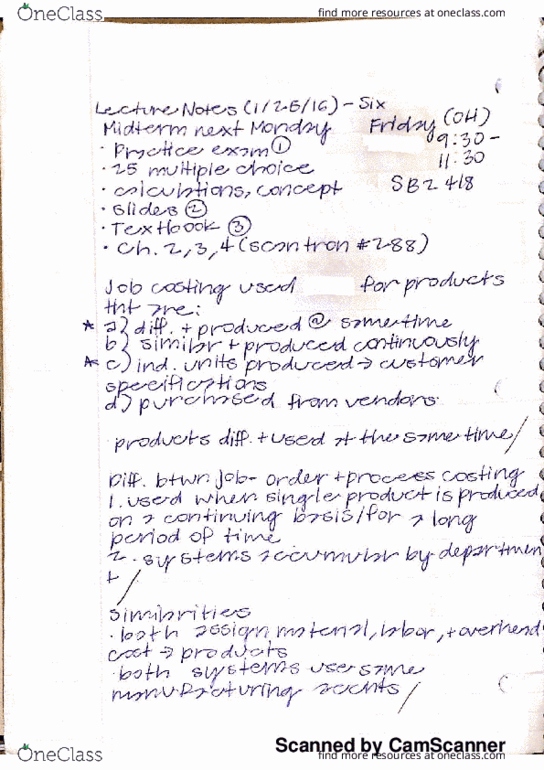 OneClass
find more resources at oneclass.com
Lecture Notes (1/25/16) - Six
Midterm next Monday
Friday (OH)
9:30 -
11:30
SB2 418
· Practice exam ①
· 25 multiple choice
· calculations, concept
· Slides ②
· Textbook ③
· Ch. 2, 3, 4 (scantron #288)
Job costing used for products
that are:
* a) diff. + produced @ same time
b) similar + produced continuously
* c) ind. units produced → customer
specifications
d) purchased from vendors
products diff. + used at the same time/
Diff. btwn job-order + process costing
1. used when single product is produced
on a continuing basis/for a long
period of time
2. systems accumular by departmen
t /
Similarities
· both assign material, labor, + overhend
cost → products
· both systems use same
manufacturing accnts /
Scanned by CamScanner
OneClass
find more resources at oneclass.com